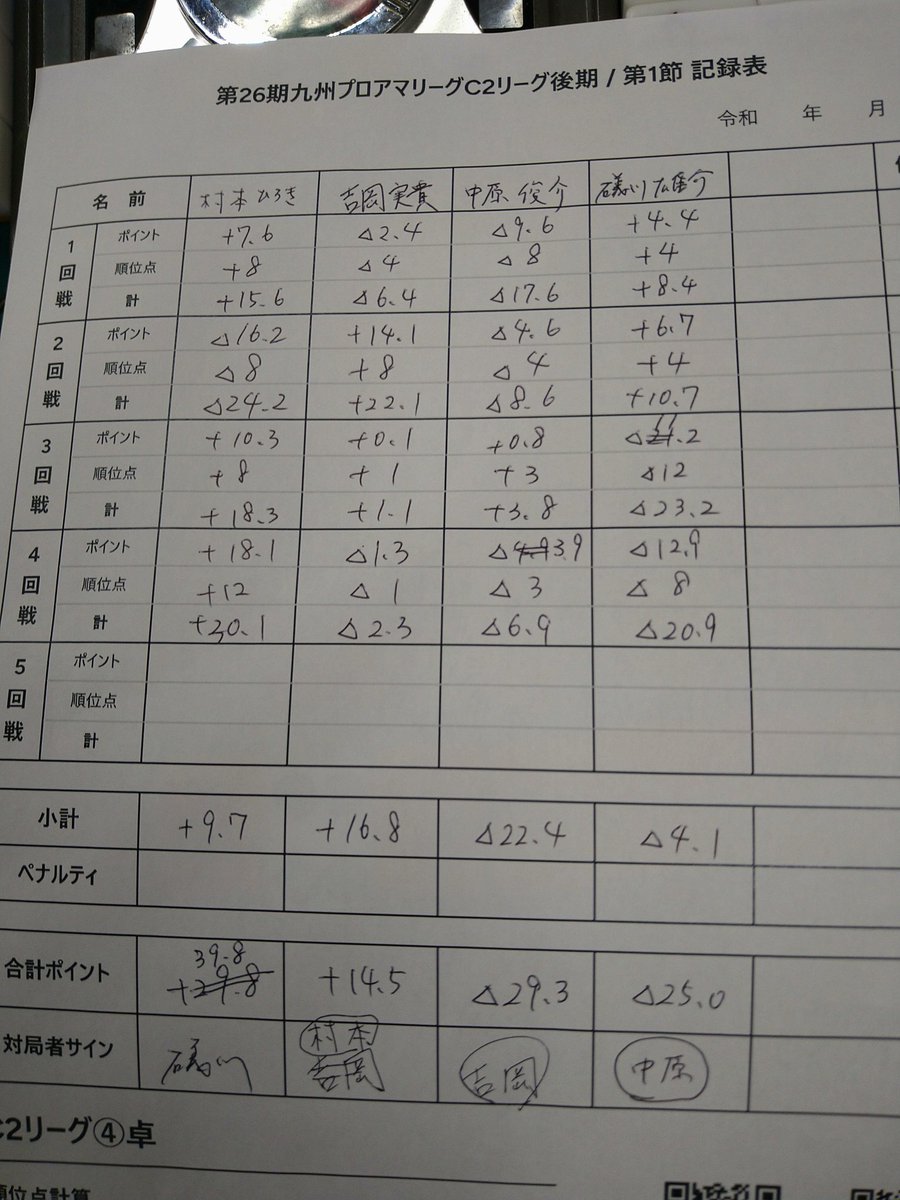 第26期九州プロアマリーグC2リーグ後期 / 第1節 記録表
令和 年 月
名前 村本ひろき 吉岡実貴 中原俊介 礒川
1回戦 ポイント +7.6 △2.4 △9.6 +4.4
順位点 +8 △4 △8 +4
計 +15.6 △6.4 △17.6 +8.4
2回戦 ポイント △16.2 +14.1 △4.6 +6.7
順位点 △8 +8 △4 +4
計 △24.2 +22.1 △8.6 +10.7
3回戦 ポイント +10.3 +0.1 +0.8 △11.2
順位点 +8 +1 +3 △12
計 +18.3 +1.1 +3.8 △23.2
4回戦 ポイント +18.1 △1.3 △3.9 △12.9
順位点 +12 △1 △3 △8
計 +30.1 △2.3 △6.9 △20.9
5回戦 ポイント
順位点
計
小計 +9.7 +16.8 △22.4 △4.1
ペナルティ
39.8
合計ポイント +29.8 +14.5 △29.3 △25.0
村本
対局者サイン 礒川 吉岡 吉岡 中原
C2リーグ④卓
順位点計算